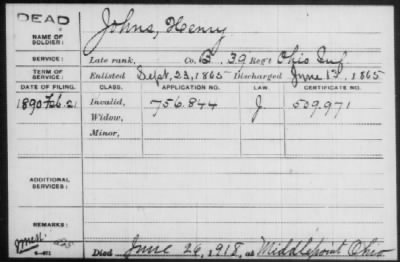 DEAD
Johns, Henry
NAME OF SOLDIER:
SERVICE: Late rank, Co. B, 39 Reg't Ohio Inf.
TERM OF SERVICE: Enlisted Sept. 23, 1865 Discharged June 13, 1865
DATE OF FILING. CLASS. APPLICATION NO. LAW. CERTIFICATE NO.
1890 Feb. 21 Invalid, 756.844 J. 509.971
Widow,
Minor,
ADDITIONAL SERVICES:
REMARKS:
Died June 26, 1918, at Middlepoint Ohio